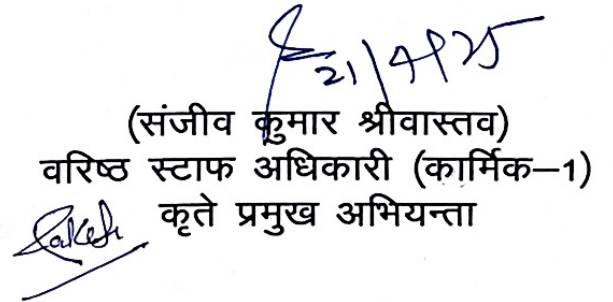 21/4/25
(संजीव कुमार श्रीवास्तव)
वरिष्ठ स्टाफ अधिकारी (कार्मिक–1)
कृते प्रमुख अभियन्ता
Rakesh